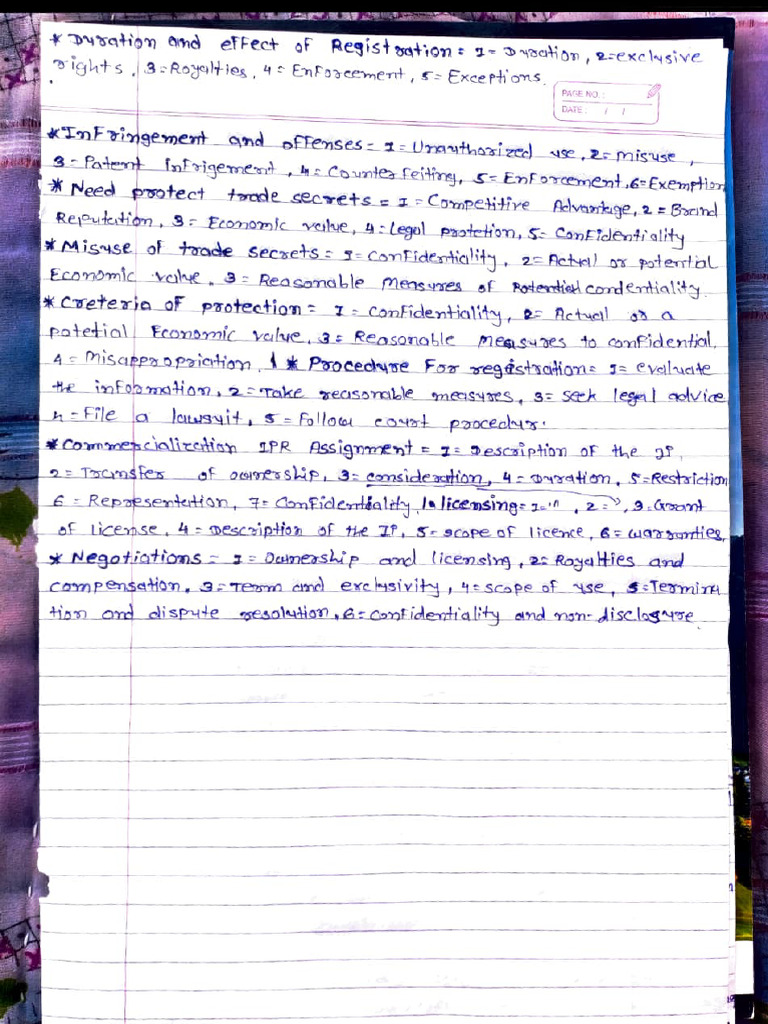 * Duration and effect of Registration = 1 = Duration, 2 = exclusive
rights, 3 = Royalties, 4 = Enforcement, 5 = Exceptions.
PAGE NO.:
DATE: / /
* Infringement and offenses = 1 = Unauthorized use, 2 = misuse,
3 = Patent infrigement, 4 = Counter feiting, 5 = Enforcement, 6 = Exemption
* Need protect trade secrets = 1 = Competitive Advantage, 2 = Brand
Reputation, 3 = Economic value, 4 = Legal protetion, 5 = Confidentiality
* Misuse of trade secrets = 1 = confidentiality, 2 = Actual or potential
Economic value. 3 = Reasonable Measures of Potential condentiality.
* Creteria of protection = 1 = confidentiality, 2 = Actual or a
potetial Economic value, 3 = Reasonable measures to confidential,
4 = Misappropriation. * Procedure For registration = 1 = evaluate
the information, 2 = Take reasonable measures, 3 = seek legal advice
4 = File a lawsuit, 5 = Follow court procedur.
* Commercialization IPR Assignment = 1 = Description of the IP,
2 = Transfer of ownership, 3 = consideration, 4 = Duration, 5 = Restriction
6 = Representation, 7 = Confidentiality, licensing = 1 = '' , 2 = , 3 = Grant
of license, 4 = Description of the IP, 5 = scope of licence, 6 = warranties,
* Negotiations = 1 = Ownership and licensing, 2 = Royalties and
compensation, 3 = Term and exclusivity, 4 = scope of use, 5 = Termina
tion and dispute resolution, 6 = confidentiality and non-disclosure.